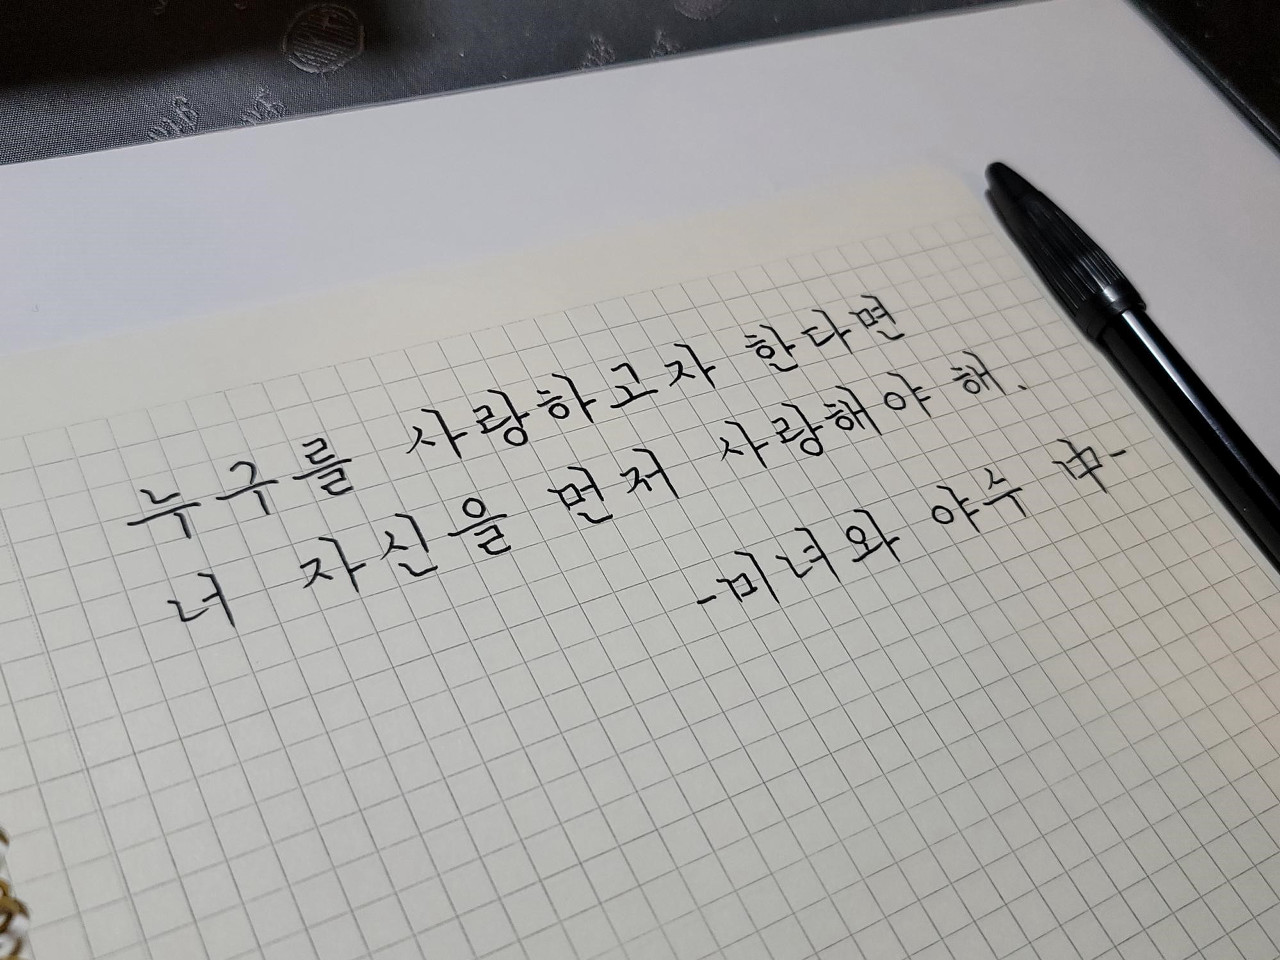 누구를 사랑하고자 한다면
너 자신을 먼저 사랑해야 해.
-미녀와 야수 中-